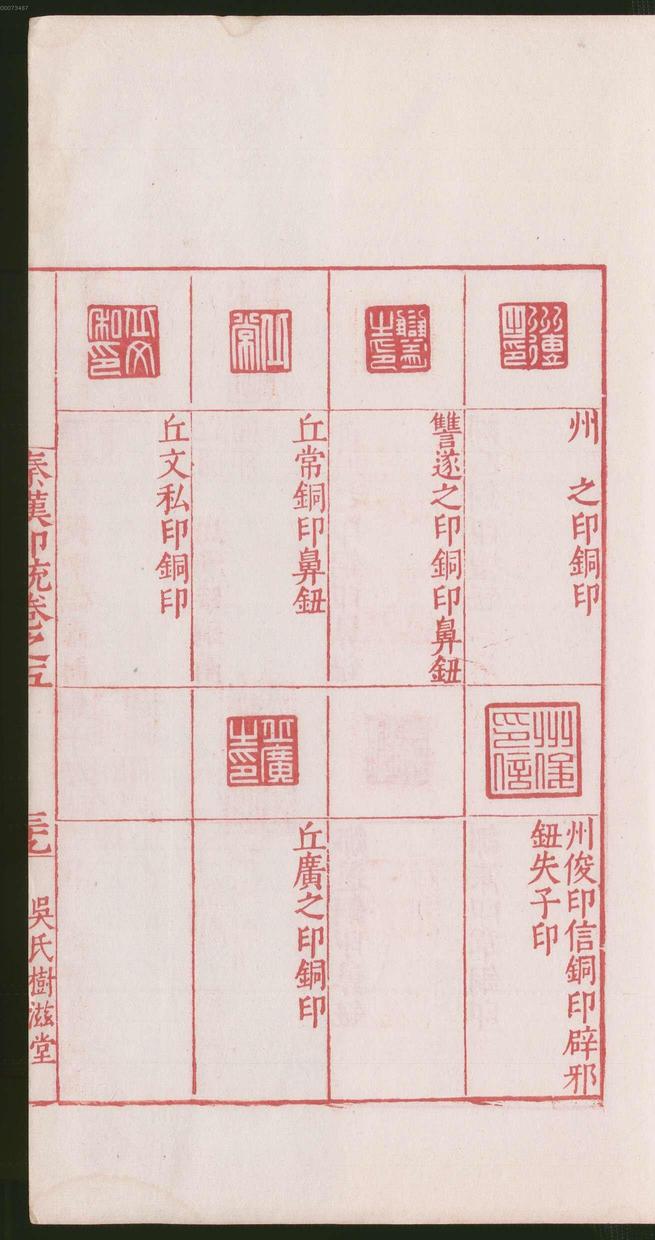 00073487
州　之印銅印
讐遂之印銅印鼻鈕
丘常銅印鼻鈕
丘文私印銅印
州俊印信銅印辟邪
鈕失子印
丘廣之印銅印
秦漢印統卷之五
吳氏樹滋堂